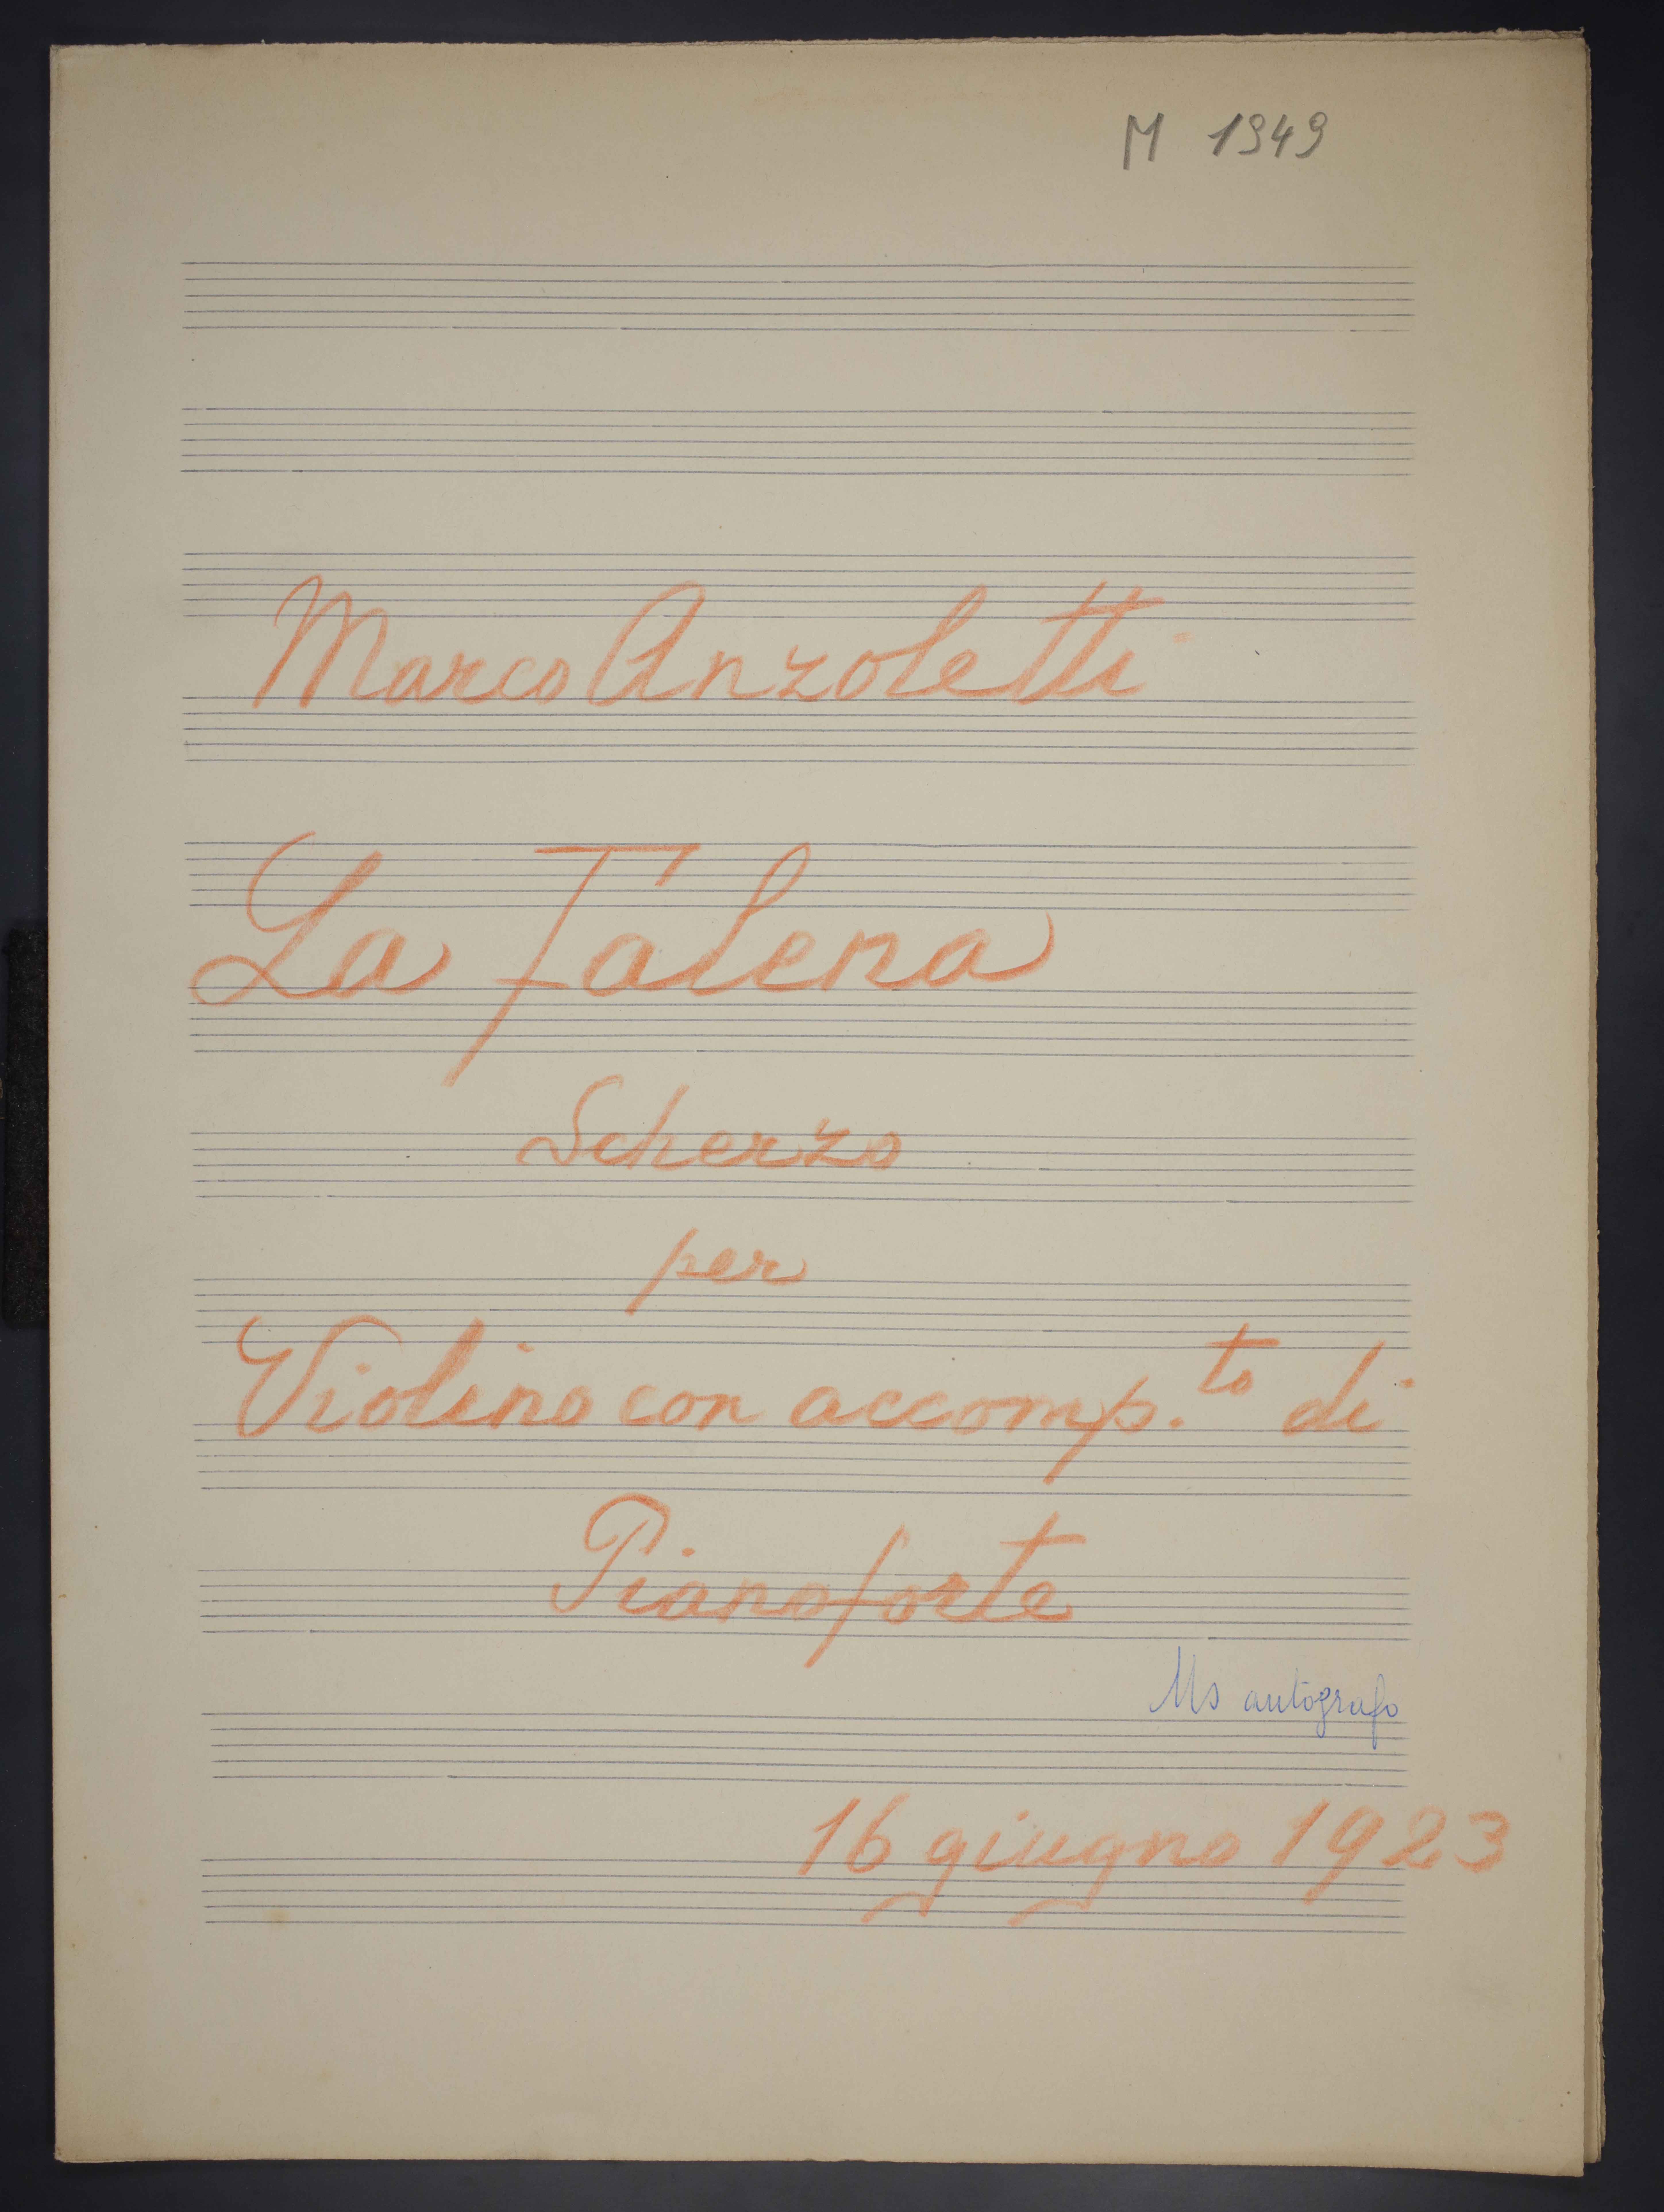 M 1949
Marco Anzoletti
La Falena
Scherzo
per
Violino con accomp.to di
Pianoforte
Ms autografo
16 giugno 1923